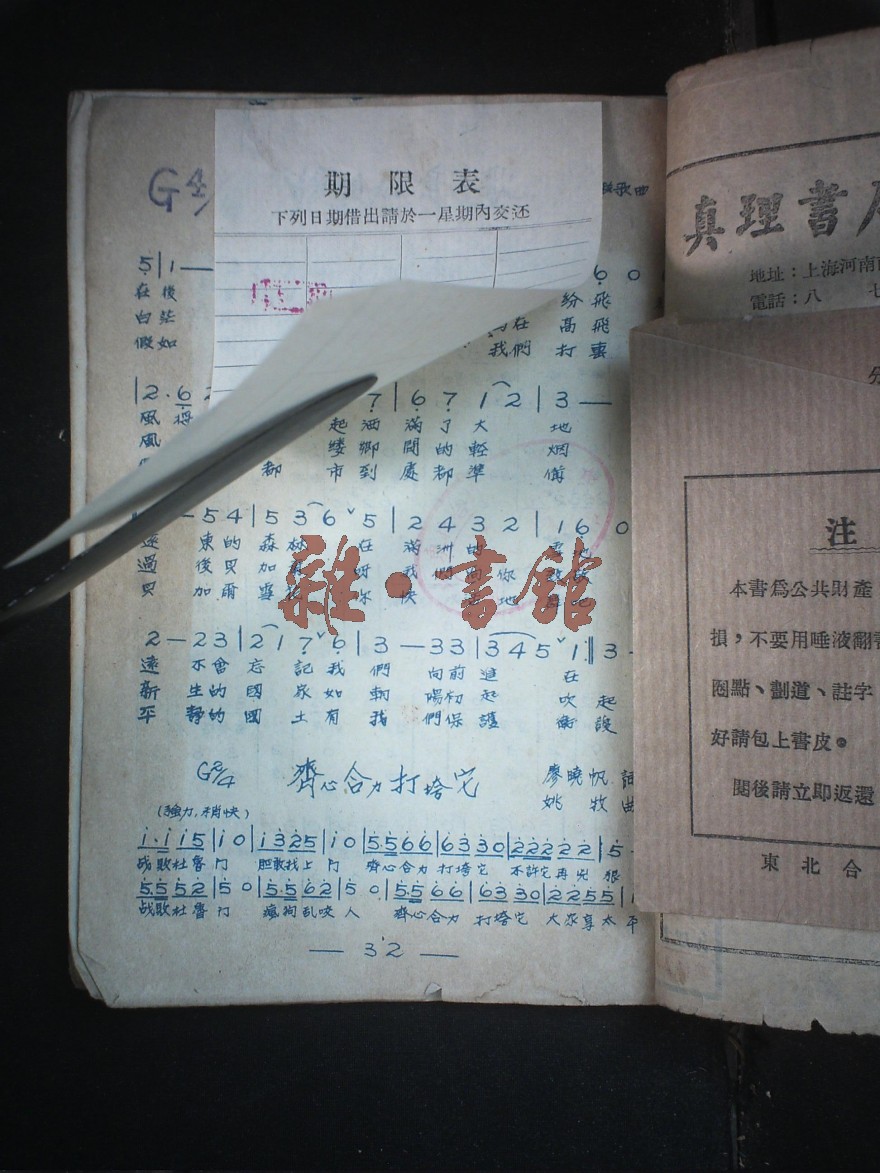 G4/
期限表
下列日期借出請於一星期內交还
歌曲
5|1—
6 0
在後
紛飛
白茫
在 高飛
假如
我們 打裏
|2·6
7|6 7 1 2|3—
風將
起洒 滿了大 地
風
缕鄉 間的輕 烟
都 市到 處都準 備
—54|5 3 6 5|2 4 3 2|16 0
東的 森林 在 滿洲的
過 後貝 加
貝 加爾
2—23|2 1 7 6|3—33|3 4 5 1:||3—
遠 不會 忘 記我 們 向前進 在
新 生的 國 家如 朝 陽初起 吹起
平 靜的 國 土有 我 們保護
G2/4
齊心合力打垮它
廖曉帆 詞
姚牧 曲
(強力,稍快)
1·1 1 5|1 0|1 3 2 5|1 0|5·5 6 6|6 3 3 0|2 2 2 2 2|5—
战敗杜魯門 胆敢找上門 齊心合力 打垮它 不許它再兇狠
5·5 5 2|5 0|5·5 6 2|5 0|5·5 6 6|6 3 3 0|2 2 5 5|1
战敗杜魯門 瘋狗乱咬人 齊心合力 打垮它 大家享太平
— 32 —
雜·書館
真理書局
地址:上海河南
電話:八 七
注
本書爲公共財產
損,不要用唾液翻書
圈點、劃道、註字
好請包上書皮。
閱後請立即返還
東北合